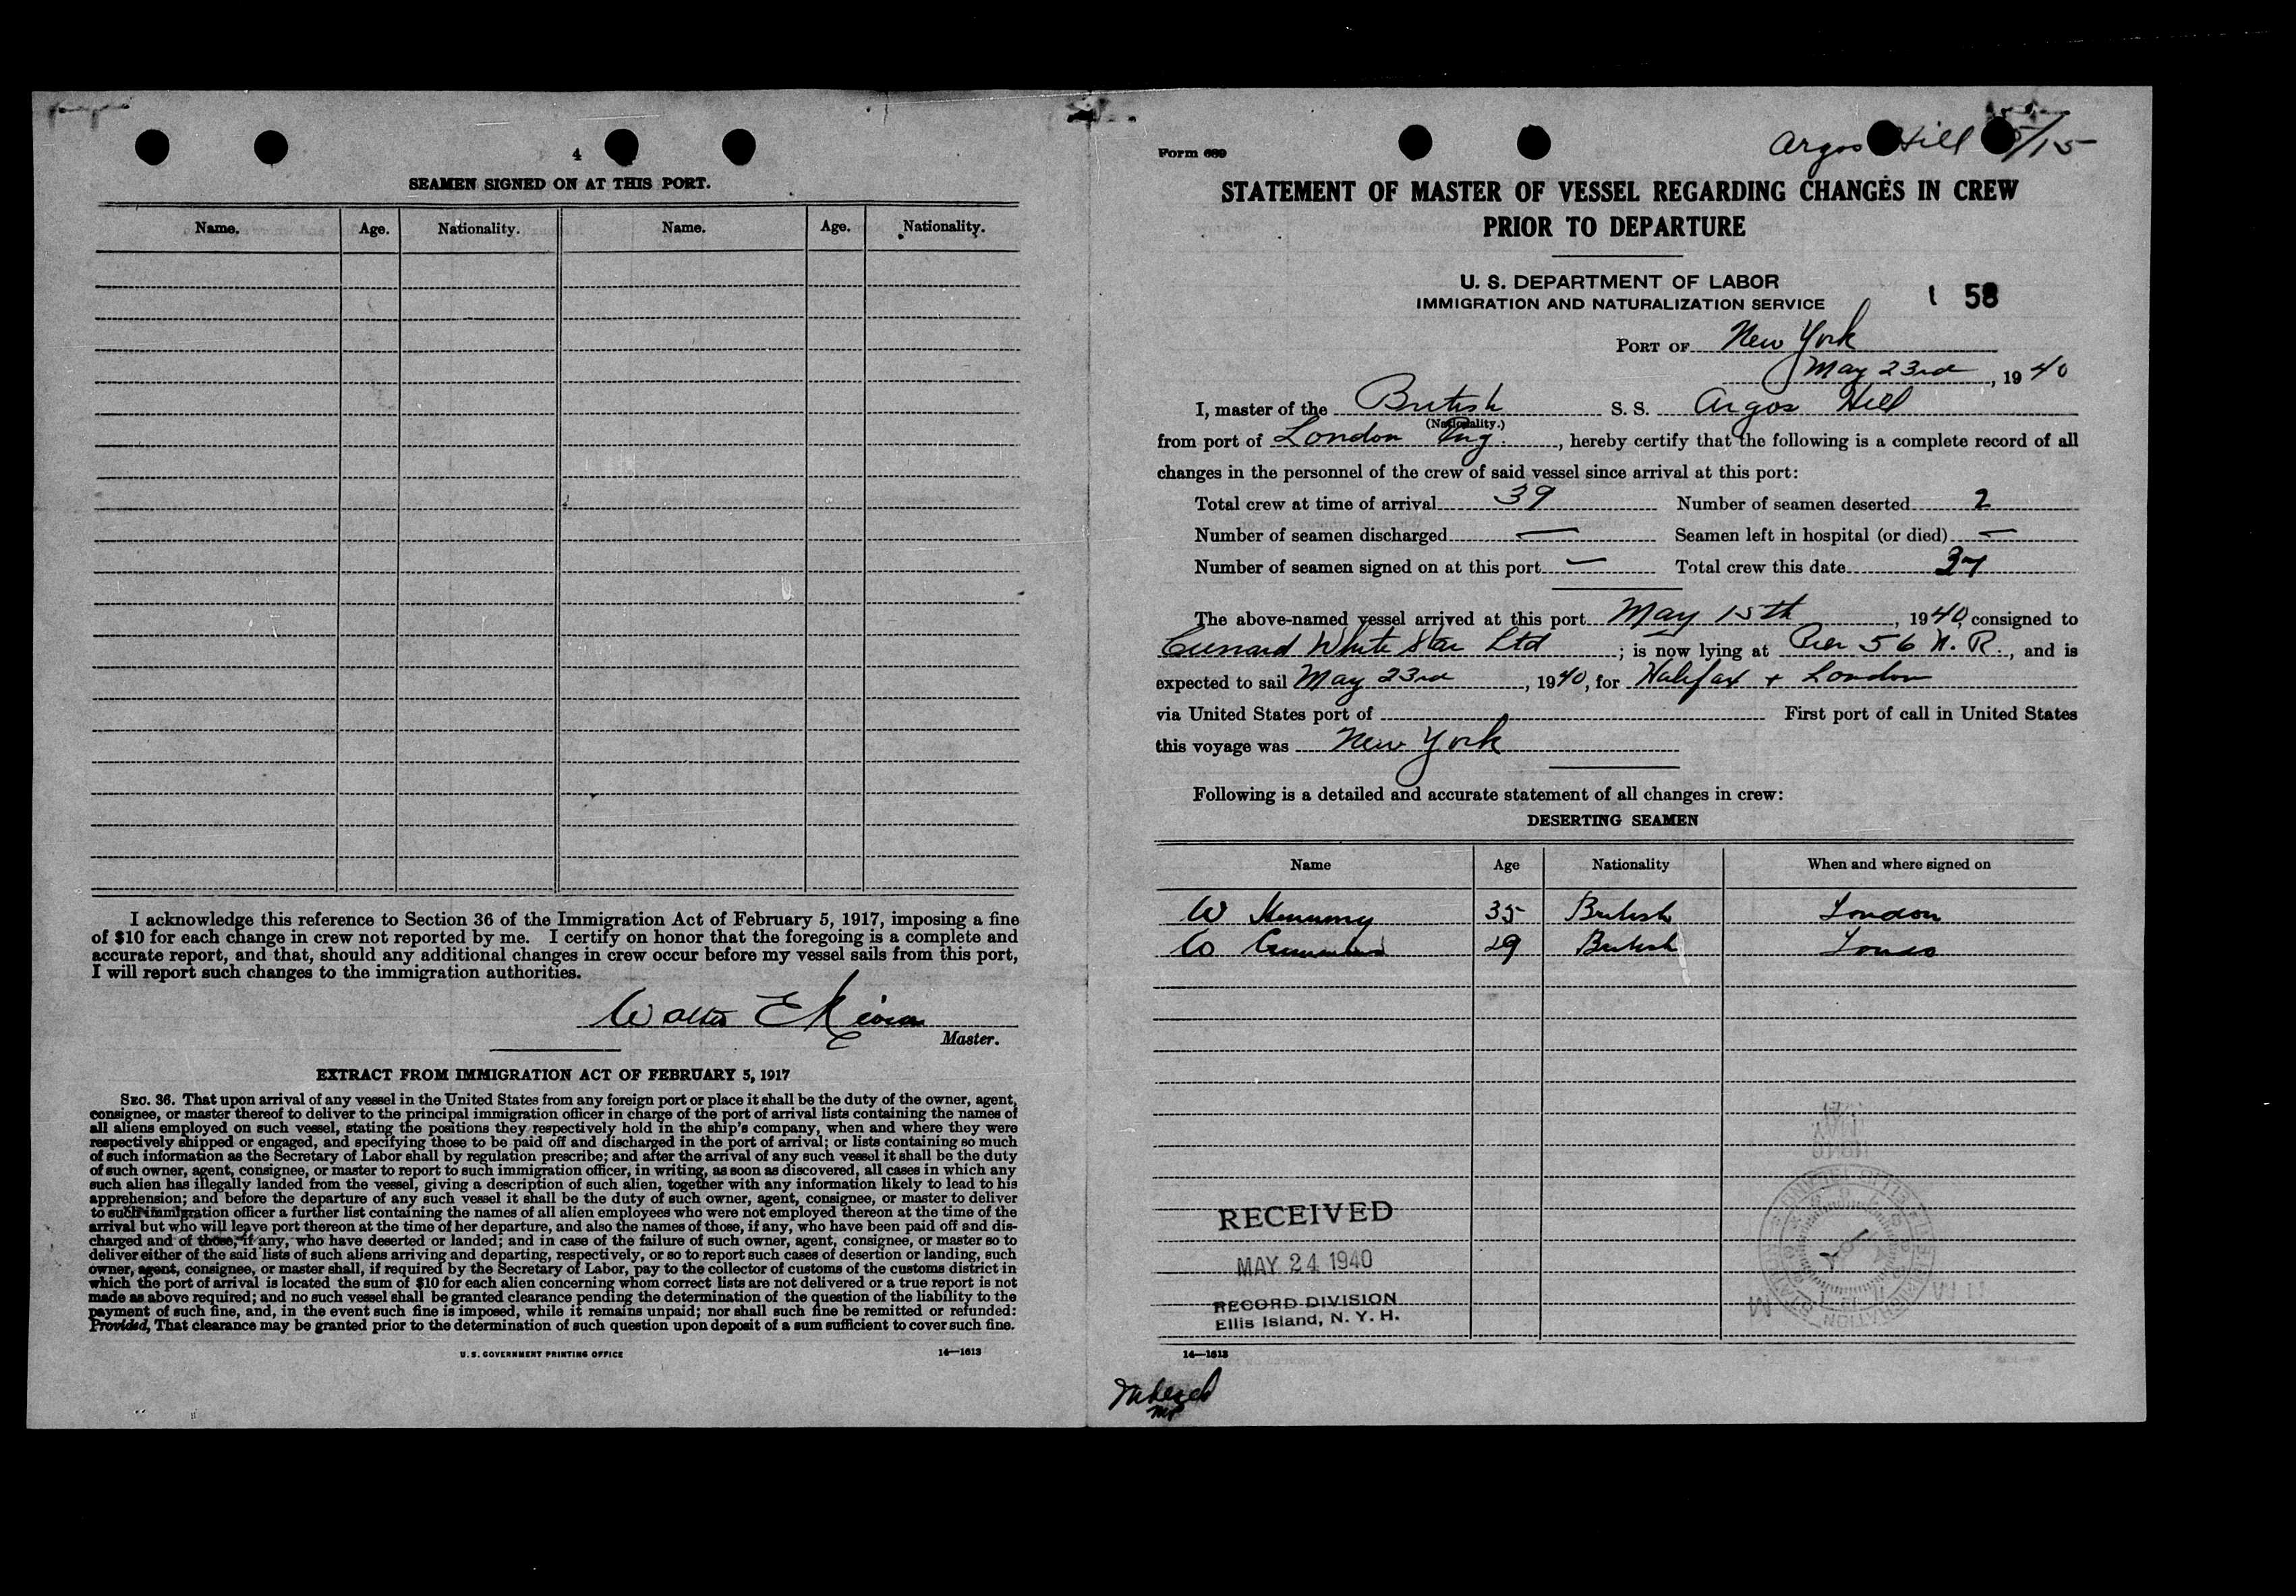 4
SEAMEN SIGNED ON AT THIS PORT.
Name. Age. Nationality. Name. Age. Nationality.
I acknowledge this reference to Section 36 of the Immigration Act of February 5, 1917, imposing a fine
of $10 for each change in crew not reported by me. I certify on honor that the foregoing is a complete and
accurate report, and that, should any additional changes in crew occur before my vessel sails from this port,
I will report such changes to the immigration authorities.
Walter E
Master.
EXTRACT FROM IMMIGRATION ACT OF FEBRUARY 5, 1917
SEC. 36. That upon arrival of any vessel in the United States from any foreign port or place it shall be the duty of the owner, agent,
consignee, or master thereof to deliver to the principal immigration officer in charge of the port of arrival lists containing the names of
all aliens employed on such vessel, stating the positions they respectively hold in the ship's company, when and where they were
respectively shipped or engaged, and specifying those to be paid off and discharged in the port of arrival; or lists containing so much
of such information as the Secretary of Labor shall by regulation prescribe; and after the arrival of any such vessel it shall be the duty
of such owner, agent, consignee, or master to report to such immigration officer, in writing, as soon as discovered, all cases in which any
such alien has illegally landed from the vessel, giving a description of such alien, together with any information likely to lead to his
apprehension; and before the departure of any such vessel it shall be the duty of such owner, agent, consignee, or master to deliver
to such immigration officer a further list containing the names of all alien employees who were not employed thereon at the time of the
arrival but who will leave port thereon at the time of her departure, and also the names of those, if any, who have been paid off and dis-
charged and of those, if any, who have deserted or landed; and in case of the failure of such owner, agent, consignee, or master so to
deliver either of the said lists of such aliens arriving and departing, respectively, or so to report such cases of desertion or landing, such
owner, agent, consignee, or master shall, if required by the Secretary of Labor, pay to the collector of customs of the customs district in
which the port of arrival is located the sum of $10 for each alien concerning whom correct lists are not delivered or a true report is not
made as above required; and no such vessel shall be granted clearance pending the determination of the question of the liability to the
payment of such fine, and, in the event such fine is imposed, while it remains unpaid; nor shall such fine be remitted or refunded:
Provided, That clearance may be granted prior to the determination of such question upon deposit of a sum sufficient to cover such fine.
U.S. GOVERNMENT PRINTING OFFICE 14—1613
Argos Hill 5/15
Form 689
STATEMENT OF MASTER OF VESSEL REGARDING CHANGES IN CREW
PRIOR TO DEPARTURE
U. S. DEPARTMENT OF LABOR
IMMIGRATION AND NATURALIZATION SERVICE
58
PORT OF New York
May 23rd, 1940
I, master of the British S. S. Argos Hill
(Nationality.)
from port of London Eng., hereby certify that the following is a complete record of all
changes in the personnel of the crew of said vessel since arrival at this port:
Total crew at time of arrival 39 Number of seamen deserted 2
Number of seamen discharged — Seamen left in hospital (or died) —
Number of seamen signed on at this port — Total crew this date 37
The above-named vessel arrived at this port May 15th, 1940, consigned to
Cunard White Star Ltd; is now lying at Pier 56 N. R., and is
expected to sail May 23rd, 1940, for Halifax + London
via United States port of First port of call in United States
this voyage was New York
Following is a detailed and accurate statement of all changes in crew:
DESERTING SEAMEN
Name Age Nationality When and where signed on
W 35 British London
29 British
RECEIVED
MAY 24 1940
RECORD DIVISION
Ellis Island, N. Y. H.
14—1613